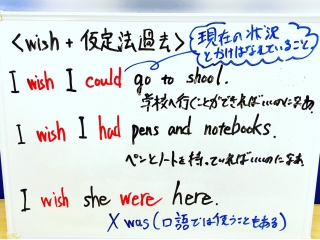 <wish + 仮定法過去>
現在の状況
とかけはなれていること
I wish I could go to shool.
学校へ行くことができればいいのになぁ
I wish I had pens and notebooks.
ペンとノートを持っていればいいのになぁ
I wish she were here.
X was (口語では使うこともある)